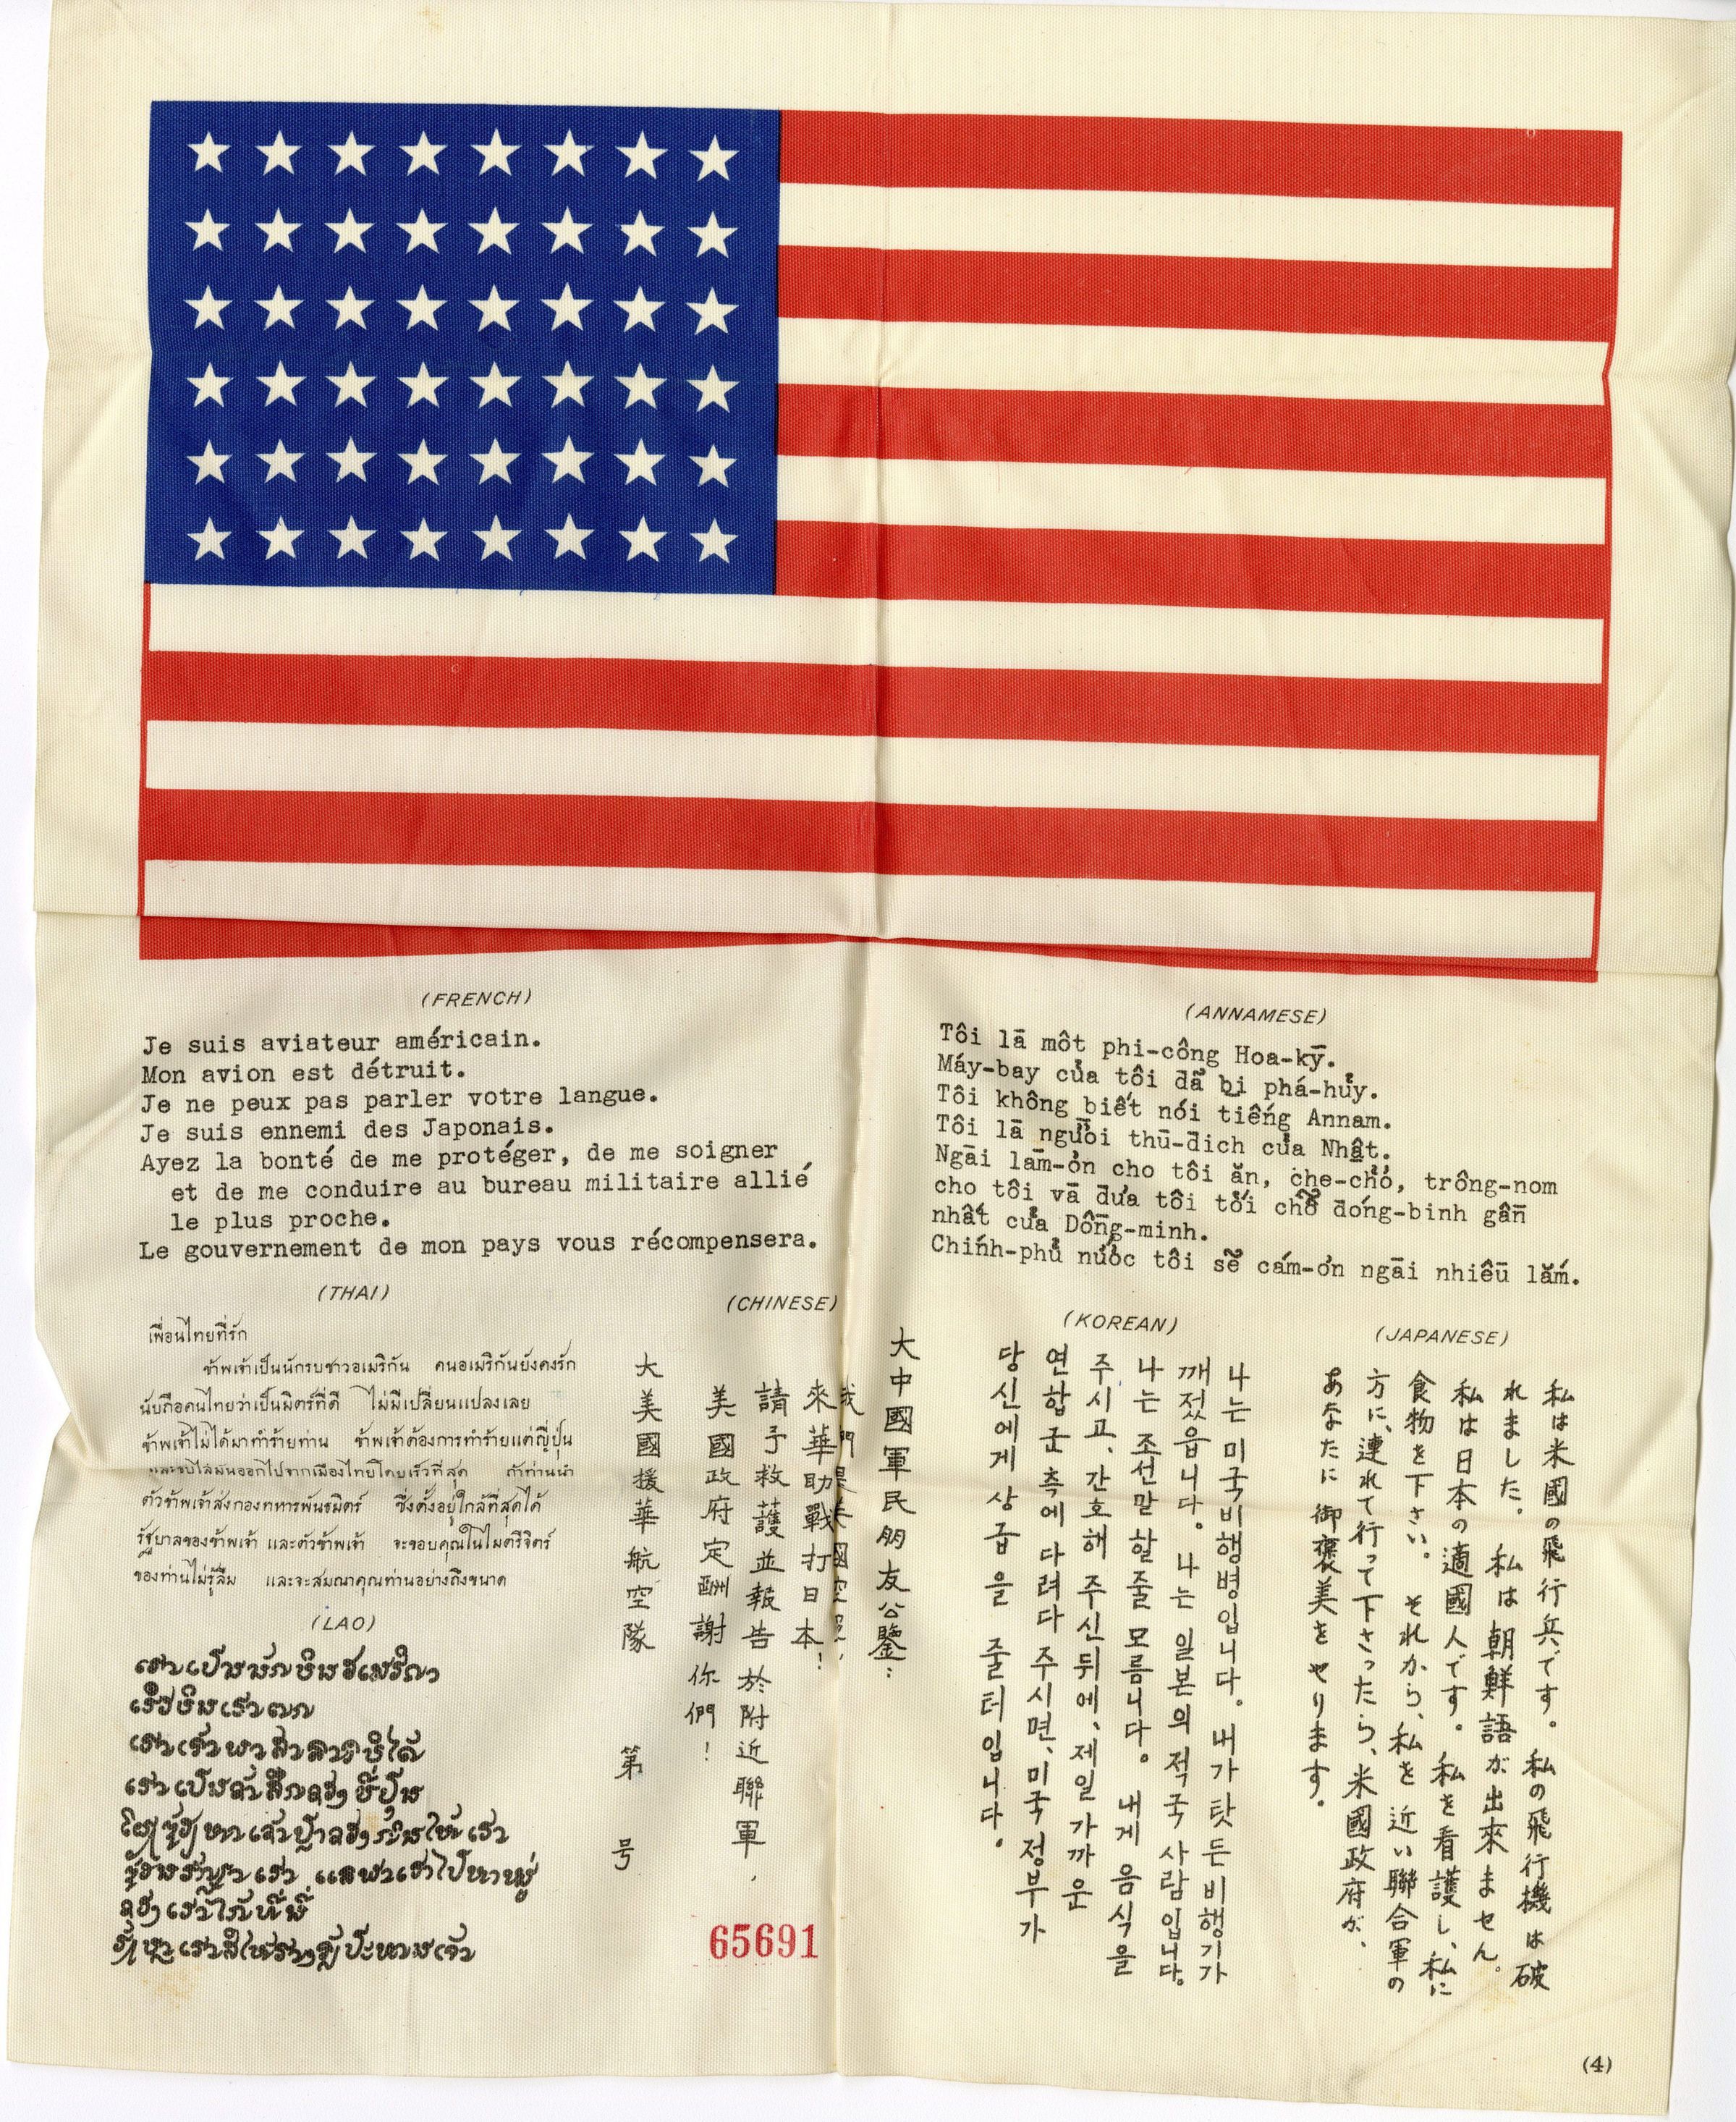 (FRENCH)
Je suis aviateur américain.
Mon avion est détruit.
Je ne peux pas parler votre langue.
Je suis ennemi des Japonais.
Ayez la bonté de me protéger, de me soigner
et de me conduire au bureau militaire allié
le plus proche.
Le gouvernement de mon pays vous récompensera.
(ANNAMESE)
Tôi lā môt phi-công Hoa-kȳ.
Máy-bay của tôi đã bị phá-hủy.
Tôi không biết nói tiếng Annam.
Tôi lā người thū-đich của Nhật.
Ngāi lām-ơn cho tôi ăn, che-chở, trông-nom
cho tôi vā đưa tôi tới chỗ đóng-binh gần
nhất của Đồng-minh.
Chính-phủ nước tôi sẽ cám-ơn ngāi nhiều lắm.
(THAI)
เพื่อนไทยที่รัก
ข้าพเจ้าเป็นนักรบชาวอเมริกัน คนอเมริกันยังคงรัก
นับถือคนไทยว่าเป็นมิตร์ที่ดี ไม่มีเปลี่ยนแปลงเลย
ข้าพเจ้าไม่ได้มาทำร้ายท่าน ข้าพเจ้าต้องการทำร้ายแต่ญี่ปุ่น
และขับไล่มันออกไปจากเมืองไทยโดยเร็วที่สุด ถ้าท่านนำ
ตัวข้าพเจ้าส่งกองทหารพันธมิตร์ ซึ่งตั้งอยู่ใกล้ที่สุดได้
รัฐบาลของข้าพเจ้า และตัวข้าพเจ้า จะขอบคุณในไมตรีจิตร์
ของท่านไม่รู้ลืม และจะสมณาคุณท่านอย่างถึงขนาด
(LAO)
(CHINESE)
大中國軍民朋友公鑒:
我們是美國空軍,
來華助戰打日本!
請予救護並報告於附近聯軍,
美國政府定酬謝你們!
大美國援華航空隊
第 号
65691
(KOREAN)
나는 미국비행병입니다. 내가 탓든 비행기가
깨젔읍니다. 나는 일본의 적국 사람입니다.
나는 조선말 할줄 모릅니다. 내게 음식을
주시고, 간호해 주신뒤에, 제일 가까운
연합군 측에 다려다 주시면, 미국정부가
당신에게 상급을 줄터입니다.
(JAPANESE)
私は米國の飛行兵です。 私の飛行機は破
れました。 私は朝鮮語が出來ません。
私は日本の適國人です。 私を看護し、私に
食物を下さい。 それから、私を近い聯合軍の
方に、連れて行って下さったら、米國政府が、
あなたに御褒美をやります。
(4)